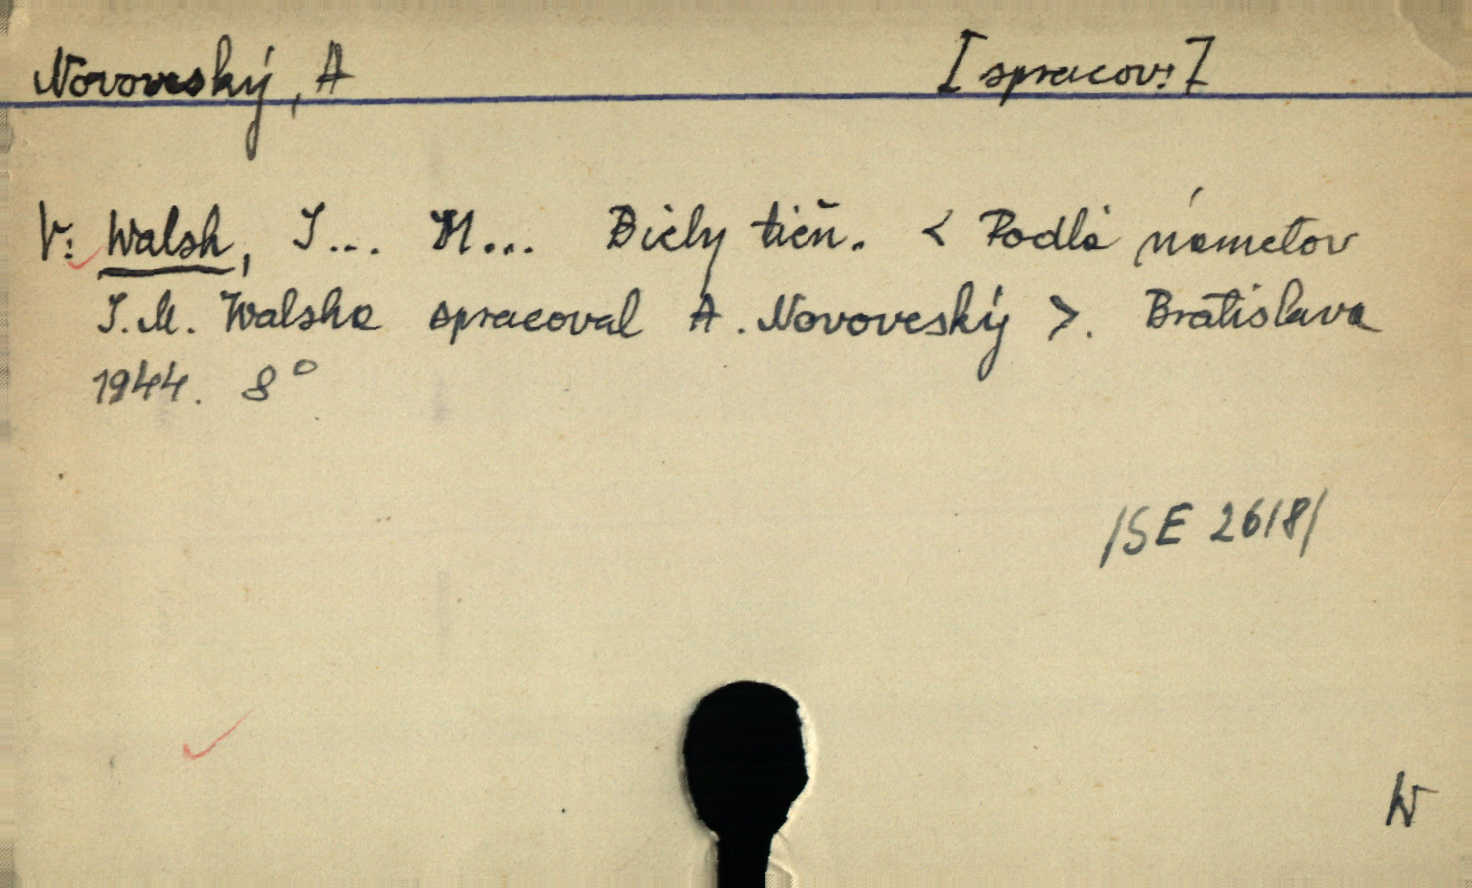 Novoveský, A [spracov.]
V: Walsh, J... M... Biely tieň. < Podľa námetov
J. M. Walsha spracoval A. Novoveský >. Bratislava
1944. 8°
/SE 2618/
W